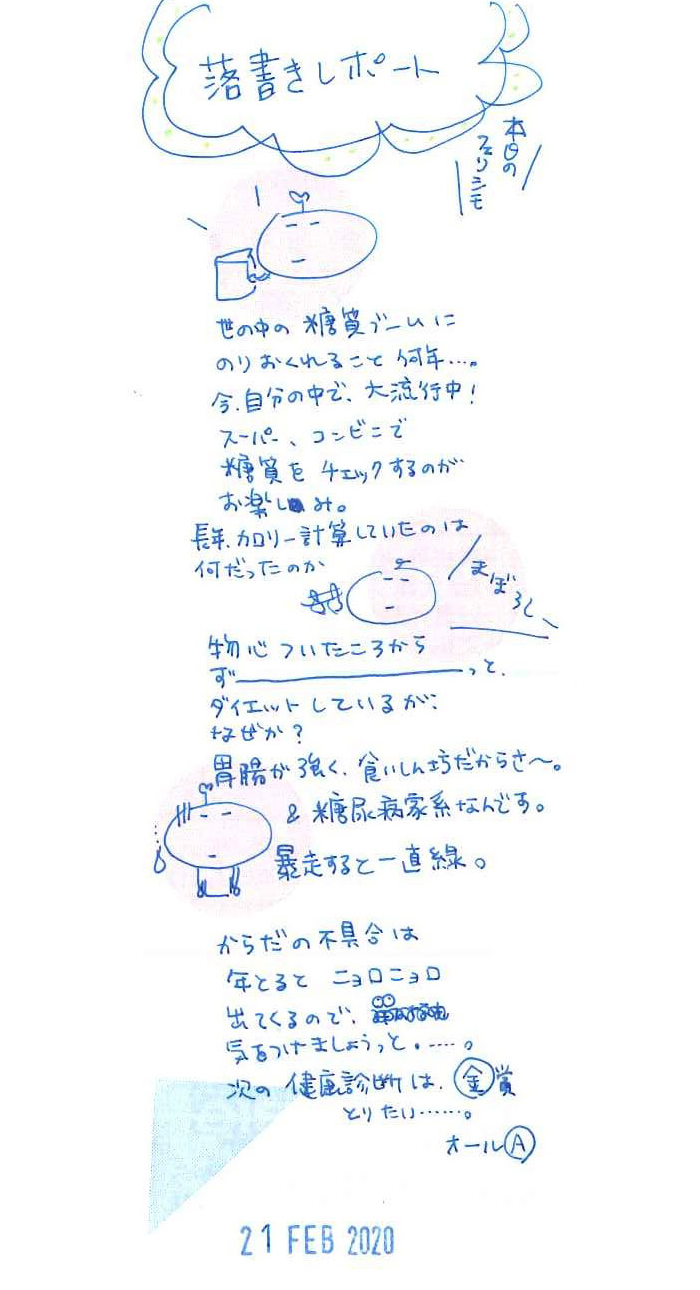 落書きレポート
本日の
フェリシモ
世の中の 糖質ブームに
のりおくれること 何年‥‥。
今、自分の中で、大流行中！
スーパー、コンビニで
糖質を チェックするのが
お楽しみ。
長年、カロリー計算していたのは
何だったのか
まぼろし、
物心ついたころから
ず――――――っと、
ダイエットしているが、
なぜか？
胃腸が強く、食いしん坊だからさ〜。
& 糖尿病家系なんです。
暴走すると一直線。
からだの不具合は
年とると ニョロニョロ
出てくるので、
気をつけましょうっと。‥‥。
次の 健康診断は、金賞
とりたい‥‥‥。
オールA
21 FEB 2020